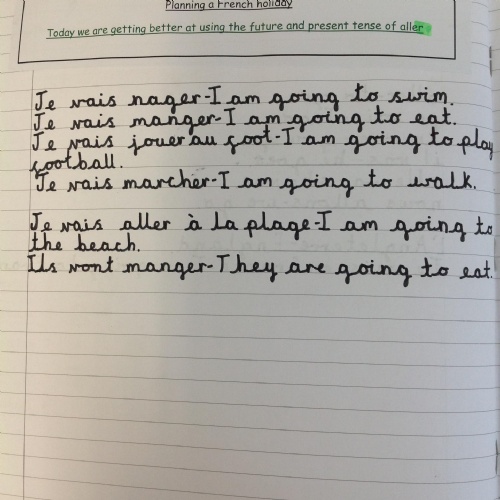 Planning a French holiday
Today we are getting better at using the future and present tense of aller
Je vais nager-I am going to swim.
Je vais manger-I am going to eat.
Je vais jouer au foot-I am going to play
football.
Je vais marcher-I am going to walk.
Je vais aller à la plage-I am going to
the beach.
Ils vont manger-They are going to eat.